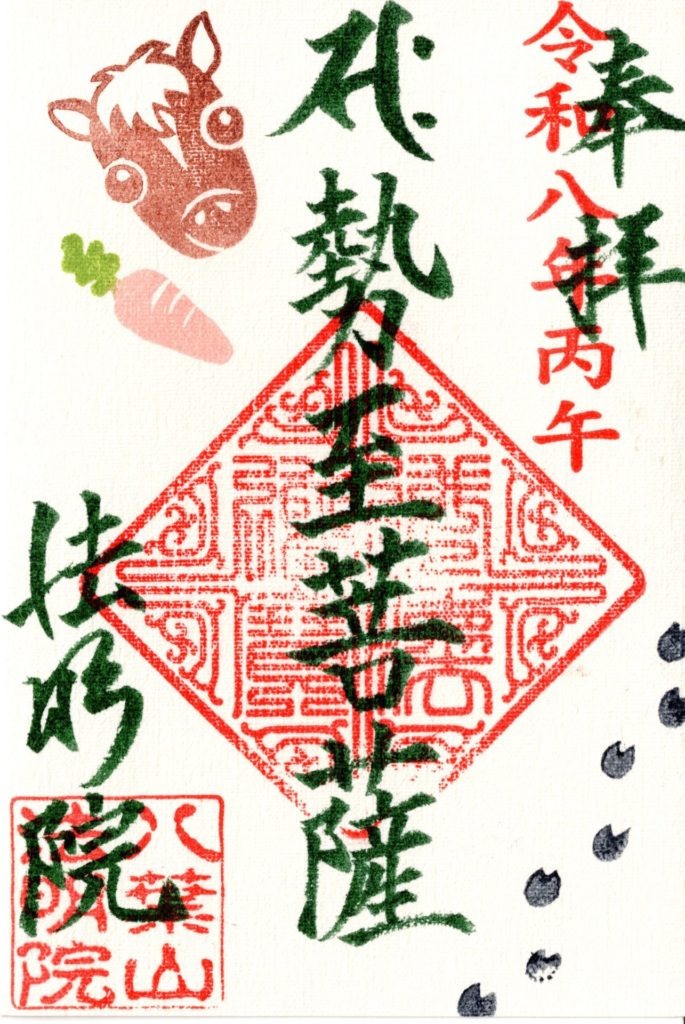 奉拝
令和八年丙午
勢至菩薩
法明院
八葉山
法明院